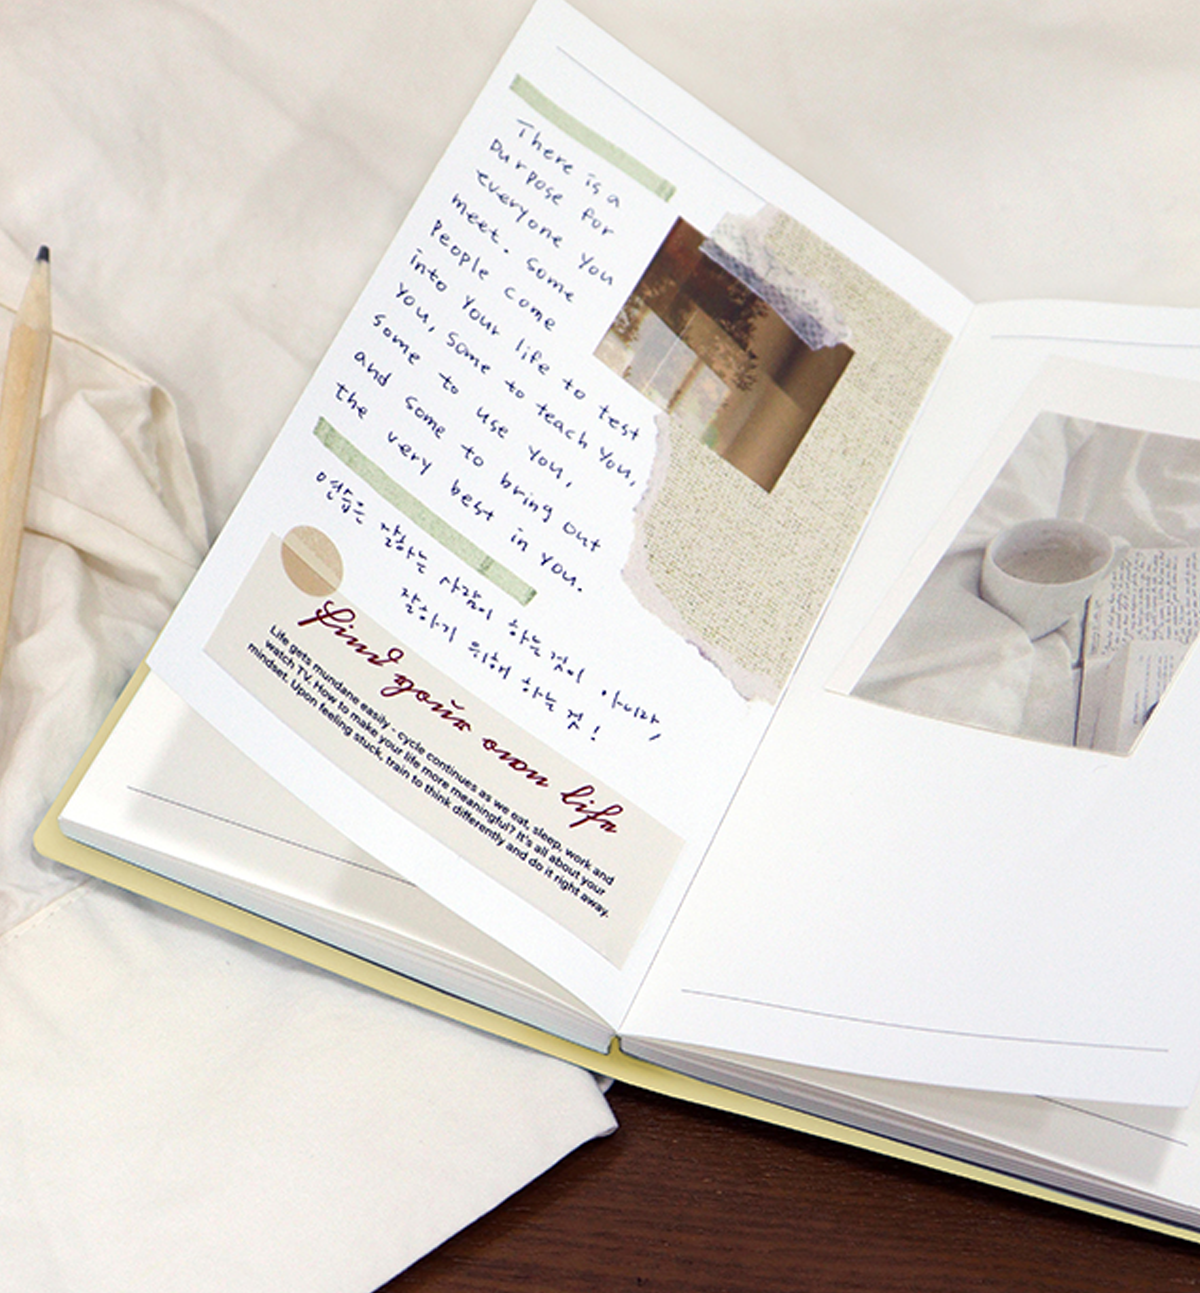 There is a
purpose for
everyone you
meet. Some
People come
into your life to test
you, some to teach you,
some to use you,
and some to bring out
the very best in you.
연습은 잘하는 사람이 하는 것이 아니라,
잘하기 위해 하는 것!
find your own life
Life gets mundane easily - cycle continues as we eat, sleep, work and
watch TV. How to make your life more meaningful? It's all about your
mindset. Upon feeling stuck, train to think differently and do it right away.